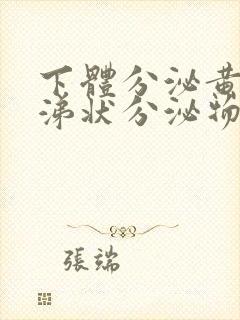 下體分泌黃
涕狀分泌物
張端